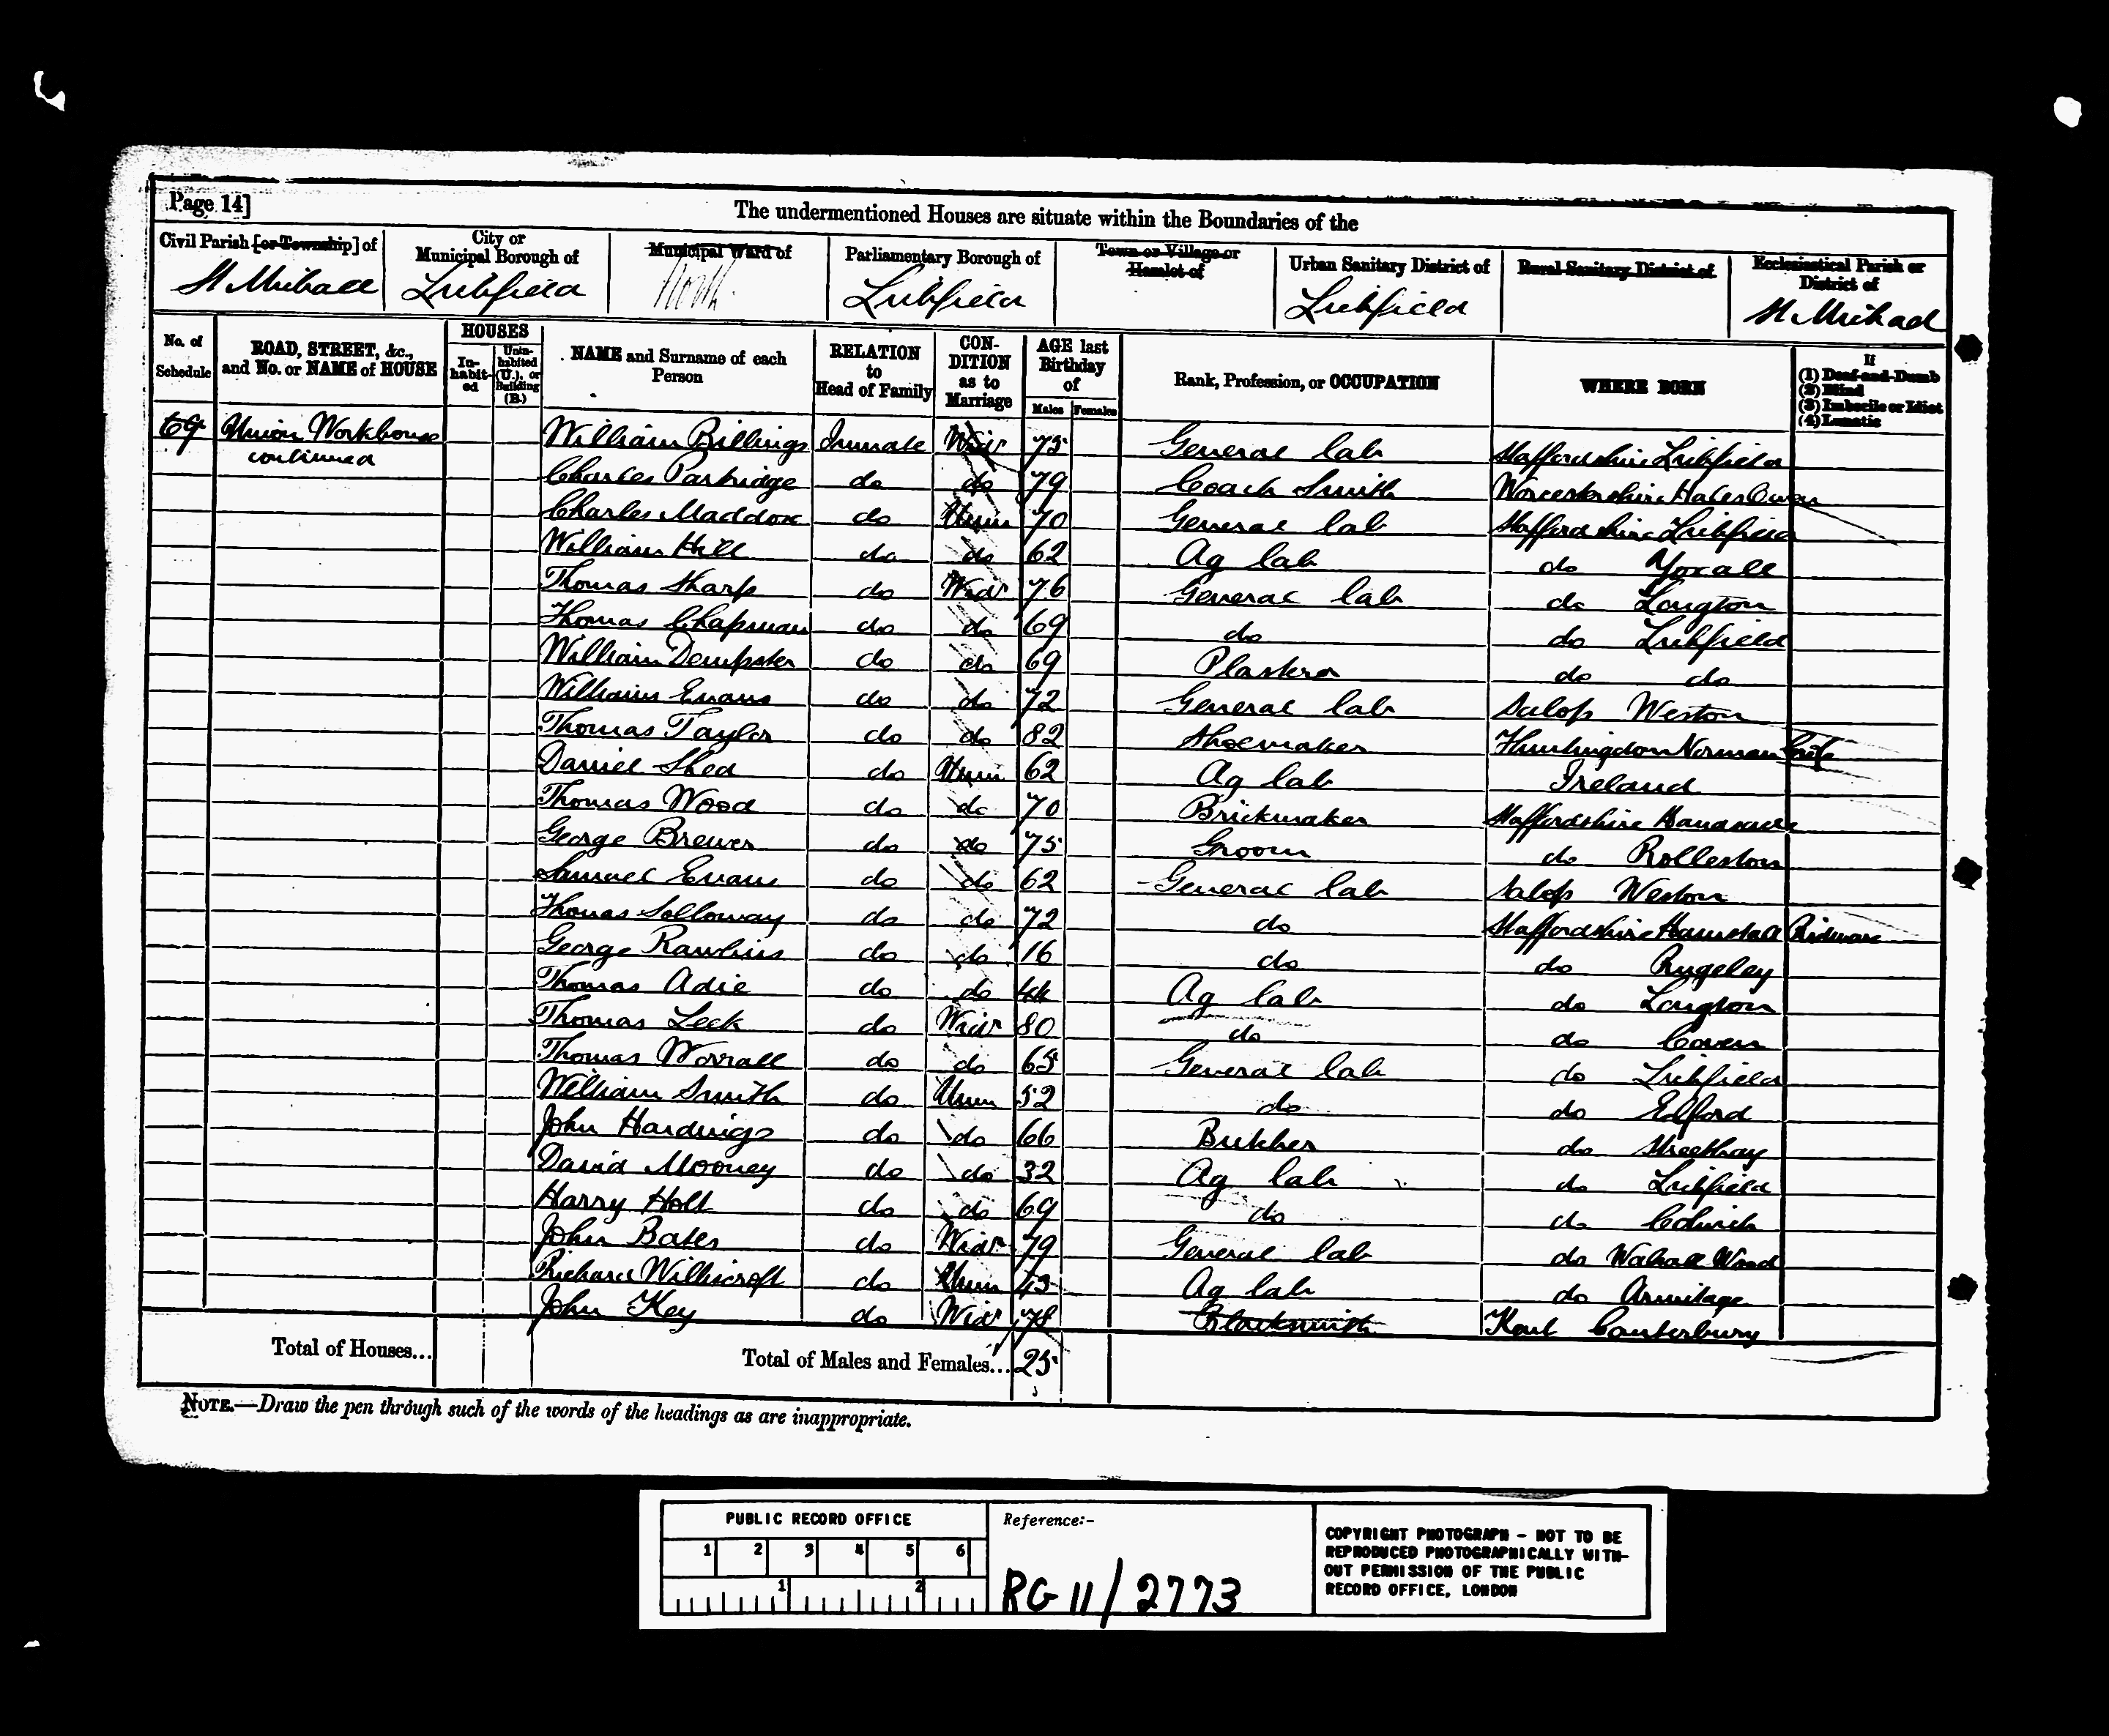 Page 14]
The undermentioned Houses are situate within the Boundaries of the
Civil Parish [or Township] of
City or Municipal Borough of
Municipal Ward of
Parliamentary Borough of
Town or Village or Hamlet of
Urban Sanitary District of
Rural Sanitary District of
Ecclesiastical Parish or District of
St Michael Lichfield North Lichfield Lichfield St Michael
No. of Schedule
ROAD, STREET, &c., and No. or NAME of HOUSE
HOUSES
In-habit-ed
Unin-habited (U.), or Building (B.)
NAME and Surname of each Person
RELATION to Head of Family
CON-DITION as to Marriage
AGE last Birthday of
Males Females
Rank, Profession, or OCCUPATION
WHERE BORN
If
(1) Deaf-and-Dumb
(2) Blind
(3) Imbecile or Idiot
(4) Lunatic
69 Union Workhouse William Billings Inmate Widr 75 General lab Staffordshire Lichfield
continued
Charles Partridge do do 79 Coach Smith Worcestershire Hales Owen
Charles Maddox do Unm 70 General lab Staffordshire Lichfield
William Hill do do 62 Ag lab do Yoxall
Thomas Sharp do Widr 76 General lab do Longton
Thomas Chapman do do 69 do do Lichfield
William Dempster do do 69 Plasterer do do
William Evans do do 72 General lab Salop Weston
Thomas Taylor do do 82 Shoemaker Huntingdon Norman
Daniel Shed do Unm 62 Ag lab Ireland
Thomas Wood do do 70 Brickmaker Staffordshire
George Brewer do do 75 Groom do Rolleston
Samuel Evans do do 62 General lab Salop Weston
Thomas Solloway do do 72 do Staffordshire Hamstall Ridware
George Rawlins do do 16 do do Rugeley
Thomas Adie do do 44 Ag lab do Longton
Thomas Leek do Widr 80 do do Coven
Thomas Worrall do do 65 General lab do Lichfield
William Smith do Unm 52 do do Edford
John Hardings do do 66 Butcher do Streethay
David Mooney do do 32 Ag lab do Lichfield
Harry Holt do do 69 do do Colwich
John Bates do Widr 79 General lab do Walsall Wood
Richard Willscroft do Unm 43 Ag lab do Armitage
John Key do Widr 78 Blacksmith Kent Canterbury
Total of Houses...
Total of Males and Females... 25
NOTE.—Draw the pen through such of the words of the headings as are inappropriate.
PUBLIC RECORD OFFICE
1 2 3 4 5 6
1 2
Reference:-
RG 11/2773
COPYRIGHT PHOTOGRAPH - NOT TO BE
REPRODUCED PHOTOGRAPHICALLY WITH-
OUT PERMISSION OF THE PUBLIC
RECORD OFFICE, LONDON